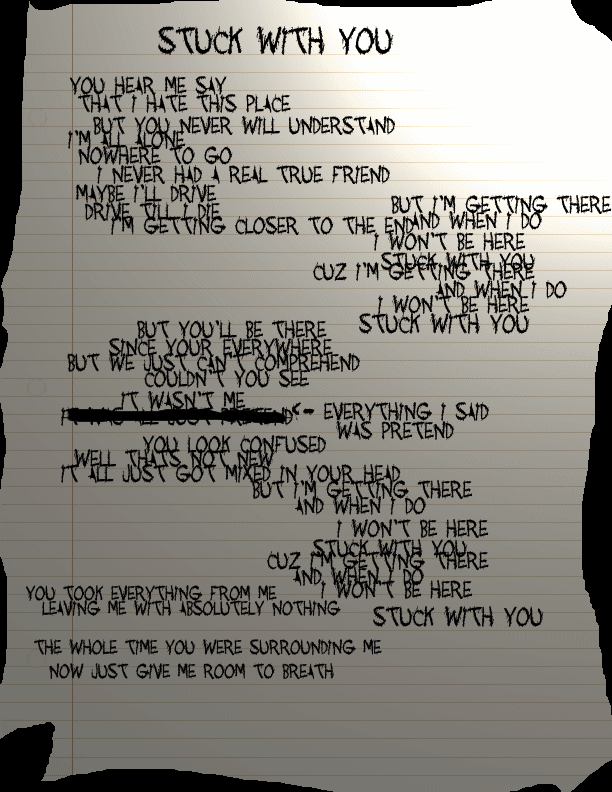 STUCK WITH YOU
YOU HEAR ME SAY
THAT I HATE THIS PLACE
BUT YOU NEVER WILL UNDERSTAND
I'M ALL ALONE
NOWHERE TO GO
I NEVER HAD A REAL TRUE FRIEND
MAYBE I'LL DRIVE
DRIVE TILL I DIE
I'M GETTING CLOSER TO THE END
BUT I'M GETTING THERE
AND WHEN I DO
I WON'T BE HERE
STUCK WITH YOU
CUZ I'M GETTING THERE
AND WHEN I DO
I WON'T BE HERE
STUCK WITH YOU
BUT YOU'LL BE THERE
SINCE YOUR EVERYWHERE
BUT WE JUST CAN'T COMPREHEND
COULDN'T YOU SEE
IT WASN'T ME
IT WAS ALL JUST PRETEND <- EVERYTHING I SAID
WAS PRETEND
YOU LOOK CONFUSED
WELL THATS NOT NEW
IT ALL JUST GOT MIXED IN YOUR HEAD
BUT I'M GETTING THERE
AND WHEN I DO
I WON'T BE HERE
STUCK WITH YOU
CUZ I'M GETTING THERE
AND WHEN I DO
I WON'T BE HERE
STUCK WITH YOU
YOU TOOK EVERYTHING FROM ME
LEAVING ME WITH ABSOLUTELY NOTHING
THE WHOLE TIME YOU WERE SURROUNDING ME
NOW JUST GIVE ME ROOM TO BREATH